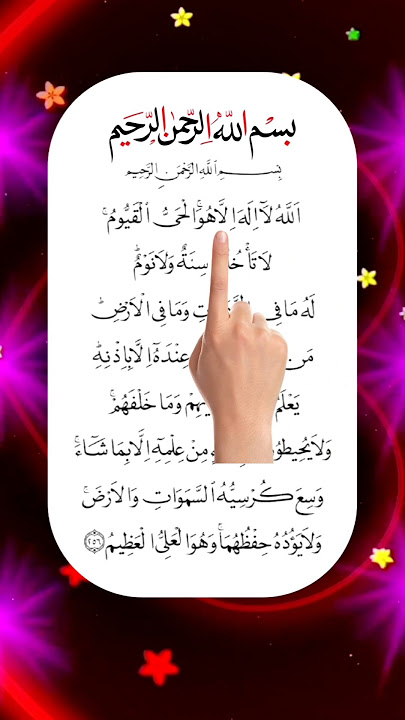 بسم الله الرحمن الرحيم
بِسْمِ اللَّهِ الرَّحْمَنِ الرَّحِيمِ
اَللَّهُ لَآ اِلَهَ اِلَّا هُوَ الْحَىُّ الْقَيُّومُ
لَا تَأْخُذُ سِنَةٌ وَلَا نَوْمٌ
لَهُ مَا فِى وَمَا فِى الْاَرْضِ
مَنْ عِنْدَهُ اِلَّا بِاِذْنِهِ
يَعْلَمُ وَمَا خَلْفَهُمْ
وَلَا يُحِيطُونَ مِنْ عِلْمِهِ اِلَّا بِمَا شَآءَ
وَسِعَ كُرْسِيُّهُ السَّمَوَاتِ وَالْاَرْضَ
وَلَا يَؤُدُهُ حِفْظُهُمَا وَهُوَ الْعَلِىُّ الْعَظِيمُ ﴿٢٥٦﴾